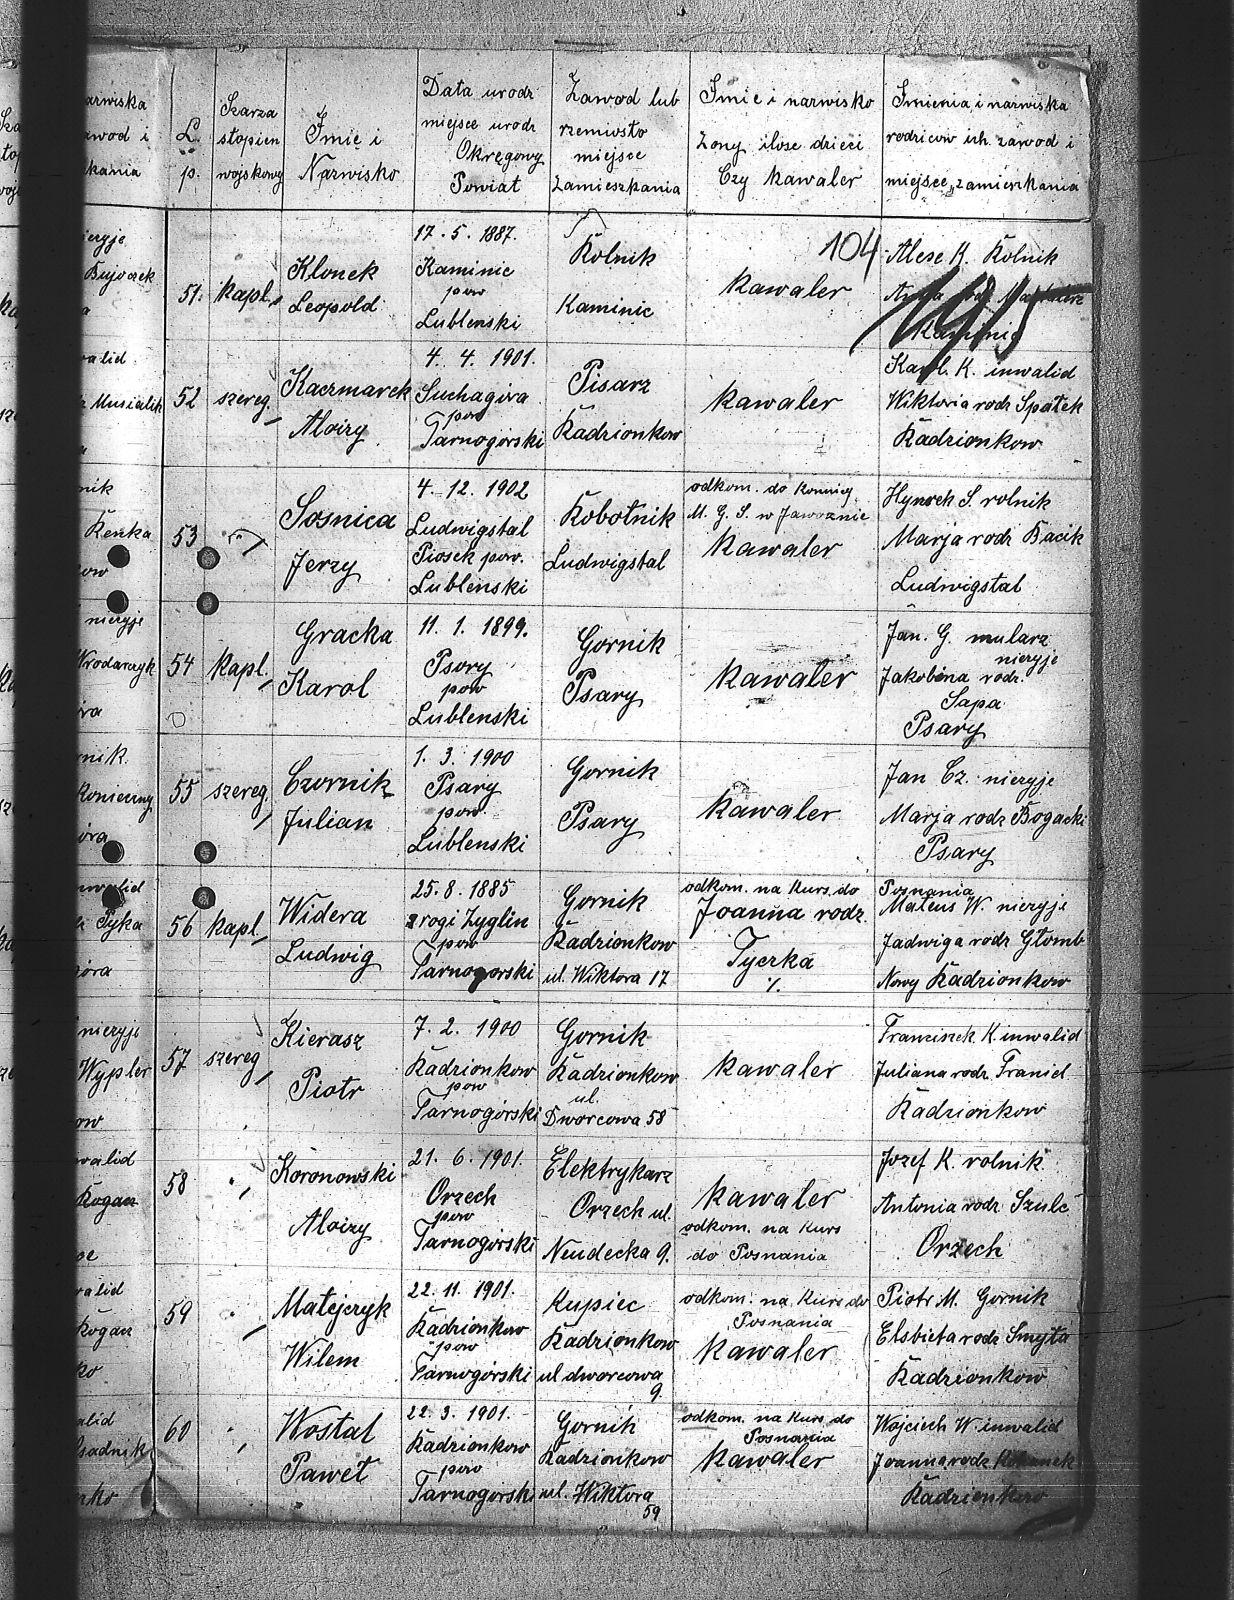 L. p.
Szarza
stopien
wojskowy
Imie i
Nazwisko
Data urodz
miejsce urodz
Okręgowy
Powiat
Zawod lub
rzemiosto
miejsce
Zamieszkania
Imie i nazwisko
Zony ilosc dzieci
Czy kawaler
Imienia i nazwiska
rodzicow ich zawod i
miejsce zamieszkania
104
51. kapl.
Klonek
Leopold
17. 5. 1887.
Kaminic
pow
Lublenski
Rolnik
Kaminic
kawaler
K. Rolnik
Kaminic
52 szereg.
Kaczmarek
Aloizy
4. 4. 1901.
Suchagóra
pow
Tarnogórski
Pisarz
Radzionkow
kawaler
Karol K. inwalid
Wiktoria rodz Spatek
Radzionkow
53 -"-
Sosnica
Jerzy
4. 12. 1902
Ludwigstal
Piosek pow.
Lublenski
Robotnik
Ludwigstal
odkom. do
M. G. S. w Jaworznie
kawaler
S. rolnik
Marja rodz Bacik
Ludwigstal
54 kapl.
Gracka
Karol
11. 1. 1899.
Psory
pow
Lublenski
Gornik
Psary
kawaler
Jan. G. mularz
niezyje
Jakobina rodz.
Sapa
Psary
55 szereg.
Czornik
Julian
1. 3. 1900
Psary
pow.
Lublenski
Gornik
Psary
kawaler
Jan Cz. niezyje
Marja rodz Bogacki
Psary
56 kapl.
Widera
Ludwig
25. 8. 1885
zrogi Zyglin
pow
Tarnogorski
Gornik
Radzionkow
ul. Wiktora 17
odkom. na Kurs. do
Joanna rodz.
Tyczka
Posnania
Mateus W. niezyje
Jadwiga rodz Głomb
Nowy Radzionkow
57 szereg
Kierasz
Piotr
7. 2. 1900
Radzionkow
pow
Tarnogórski
Gornik
Radzionkow
ul.
Dworcowa 58
kawaler
Franciszek K. inwalid
Juliana rodz. Franiel
Radzionkow
58 "
Koronowski
Aloizy
21. 6. 1901.
Orzech
pow
Tarnogórski
Elektrykarz
Orzech ul.
Neudecka 9.
kawaler
odkom. na Kurs
do Posnania
Jozef K. rolnik
Antonia rodz. Szulc
Orzech
59 "
Matejczyk
Wilem
22. 11. 1901.
Radzionkow
pow
Tarnogórski
Kupiec
Radzionkow
ul dworcowa
9.
odkom. na Kurs do
Posnania
kawaler
Piotr M. Gornik
Elsbieta rodz Smyta
Radzionkow
60 "
Wostal
Paweł
22. 3. 1901.
Radzionkow
pow
Tarnogorski
Gornik
Radzionkow
ul. Wiktora
59
odkom. na Kurs do
Posnania
kawaler
Wojciech W. inwalid
Joanna rodz
Radzionkow